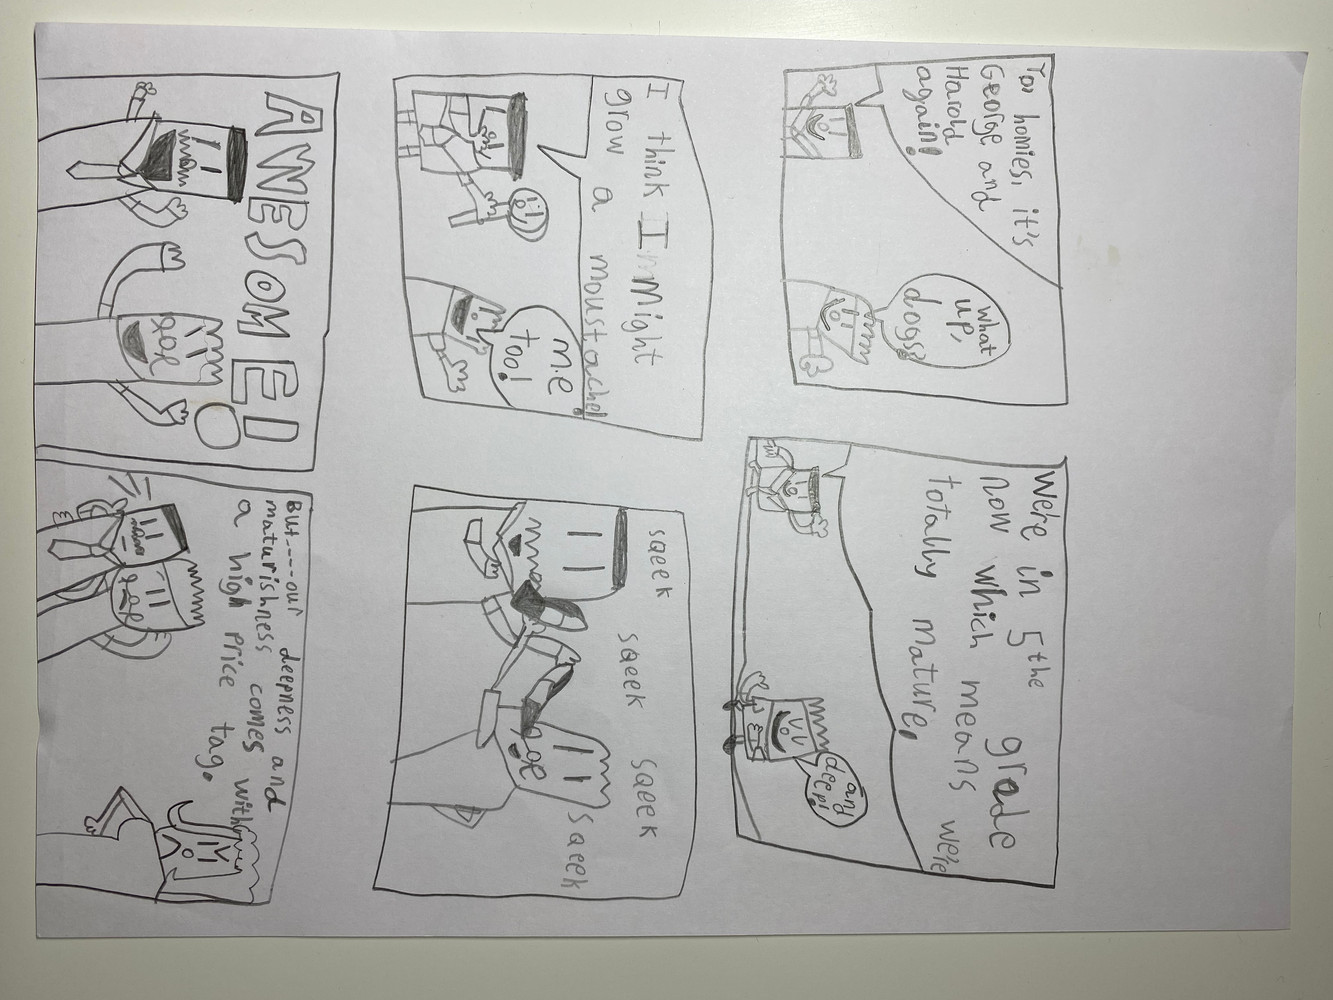 Yo homies, it's
George and
Harold
again!
What
up,
dogs?
We're in 5the grade
now which means we're
totally mature!
and
deep!
I think I Might
grow a moustache!
me
too!
sqeek
sqeek
sqeek
sqeek
AWESOME!
But----our deepness and
maturishness comes with
a high Price tag.